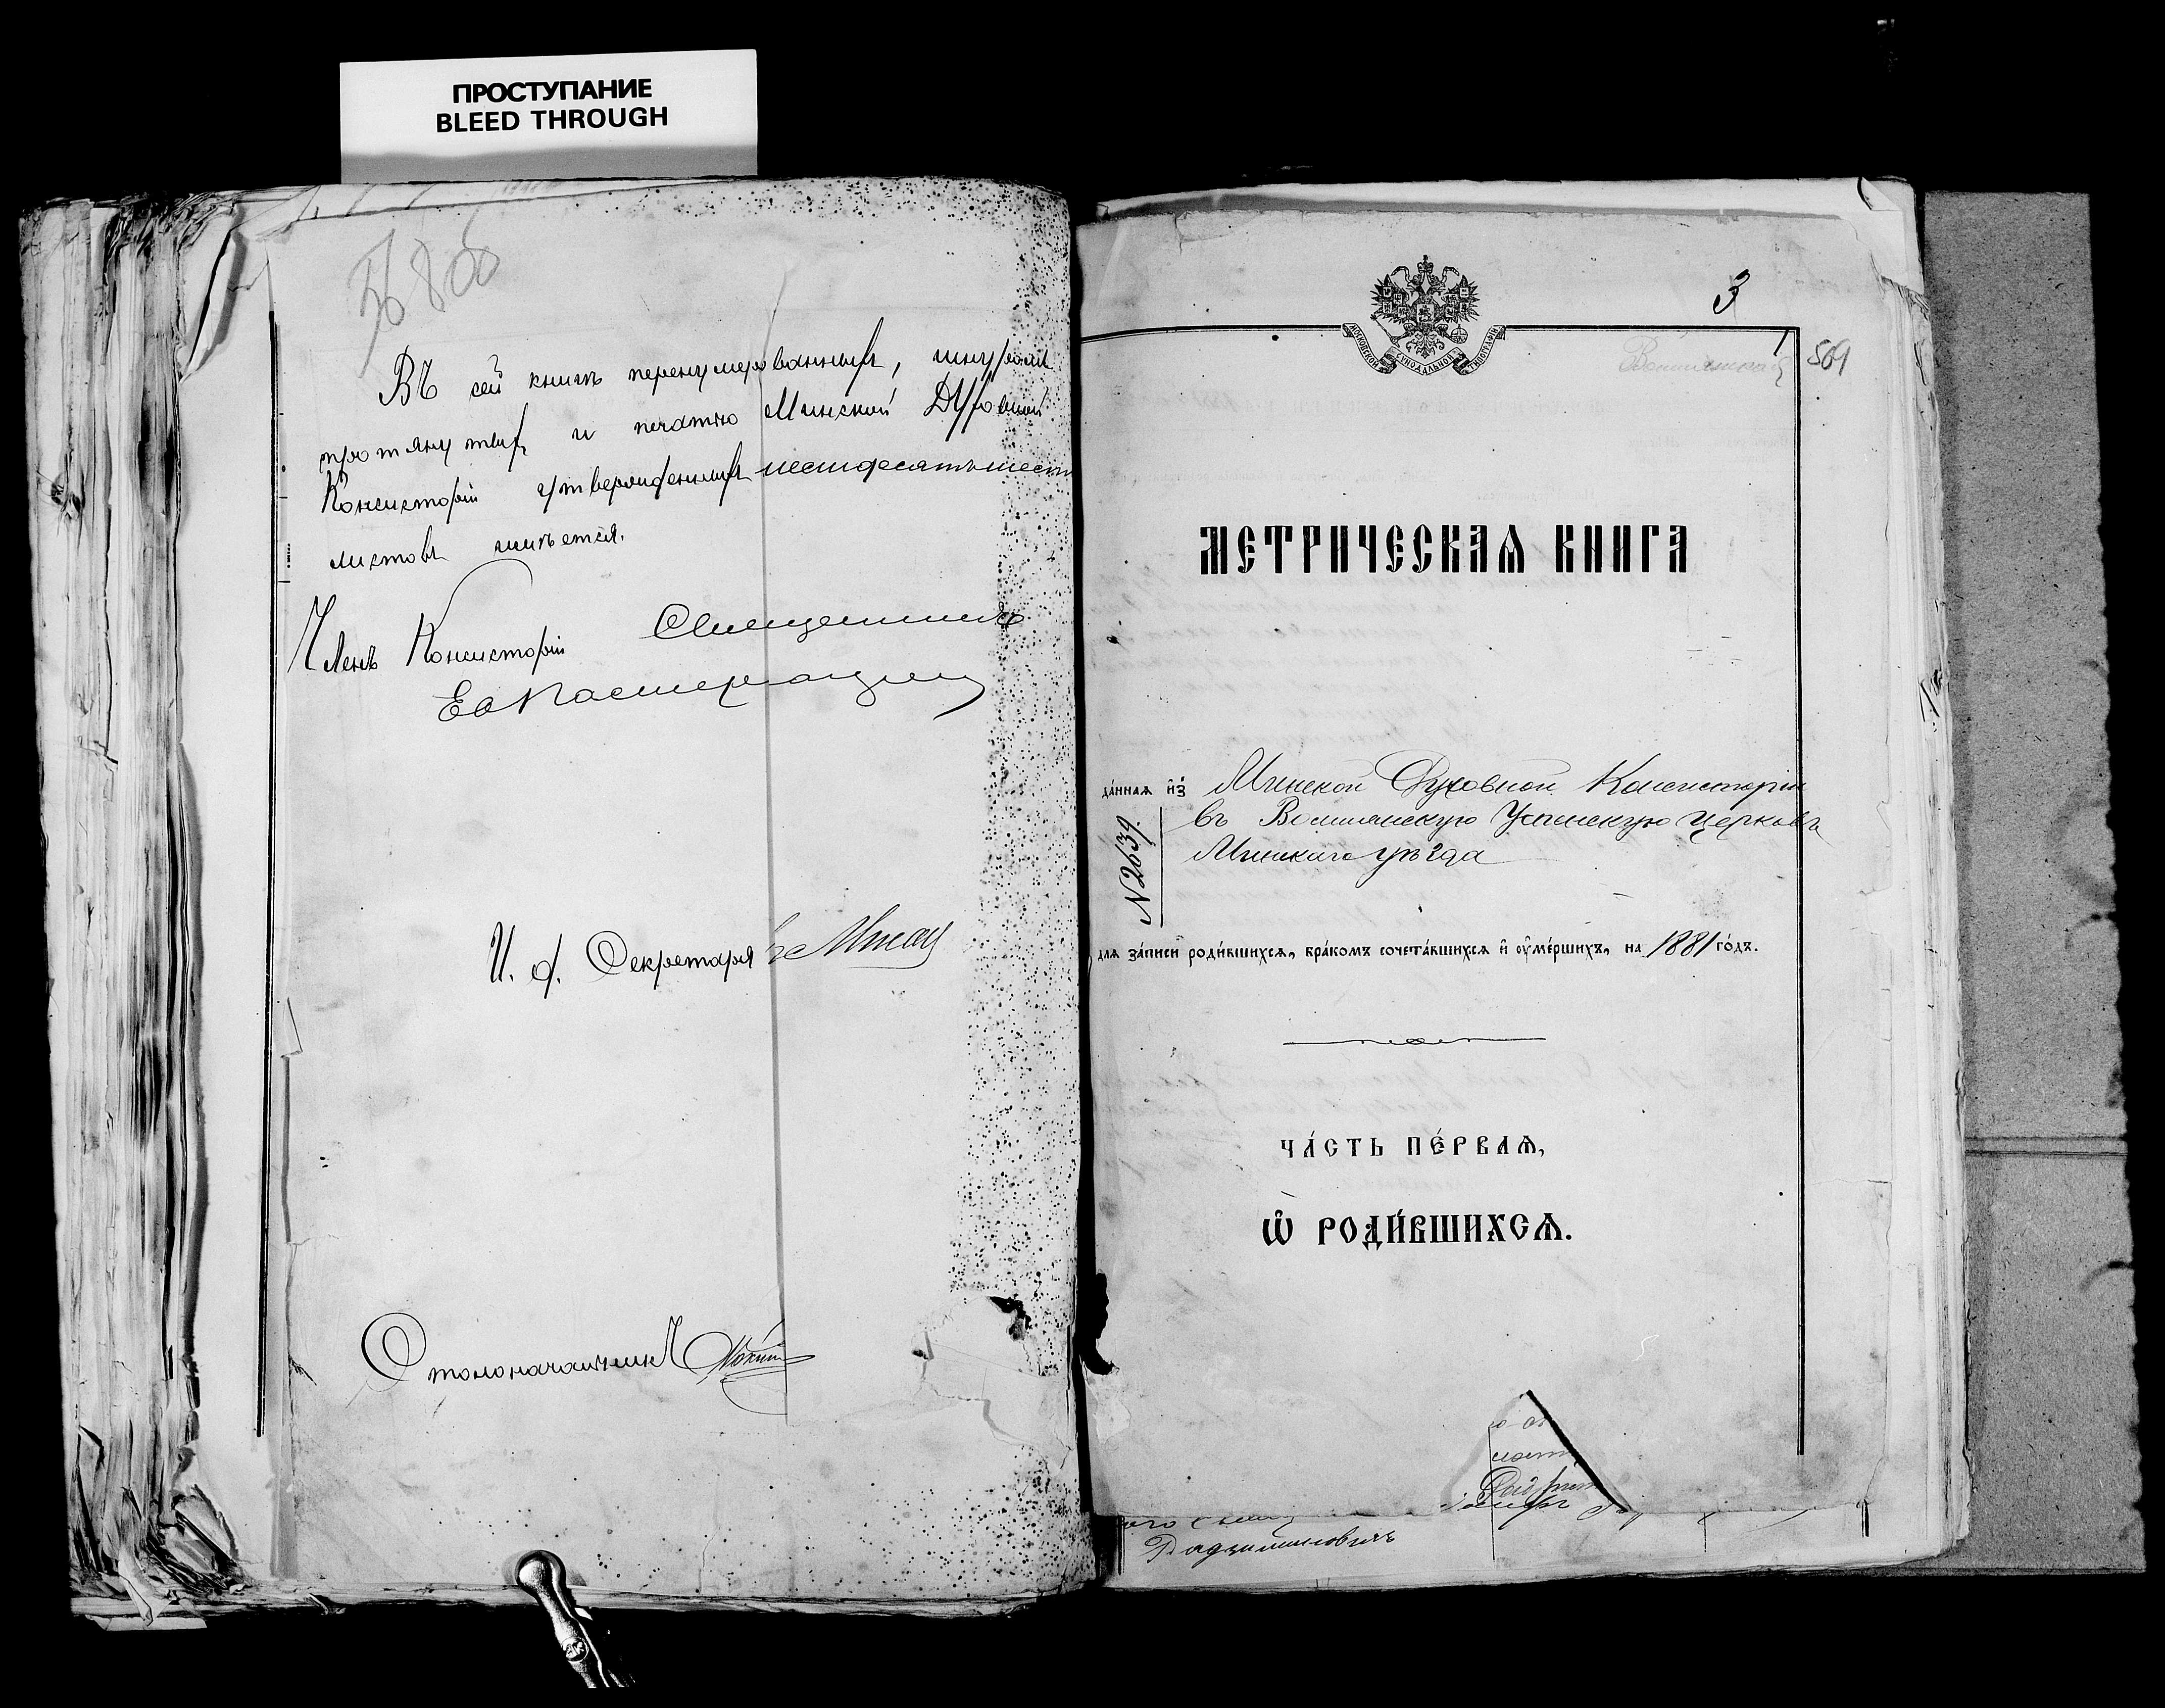 ПРОСТУПАНИЕ
BLEED THROUGH
Въ сей книгѣ перенумерованныхъ, шнуромъ
протянутыхъ и печатью Минской Духовной
Консисторіи утвержденныхъ шестьдесятъ шесть
листовъ имѣется.
Членъ Консисторіи Священникъ
И. д. Секретаря
Столоначальникъ
3
569
МОСКОВСКОЙ СѴНОДАЛЬНОЙ ТИПОГРАФІИ
МЕТРИЧЕСКАѦ КНИГА
да́ннаѧ и҆з̾ Минской Духовной Консисторіи
въ Волчанскую Успенскую церковь
Минскаго уѣзда
N 2639.
длѧ за́писи роди́вшихсѧ, бра́комъ сочета́вшихсѧ и҆ ᲂу҆ме́ршихъ, на 1881 го́дъ.
ЧА́СТЬ ПЕ́РВАѦ,
Ѡ҆ РОДИ́ВШИХСѦ.
Радзиминовичъ